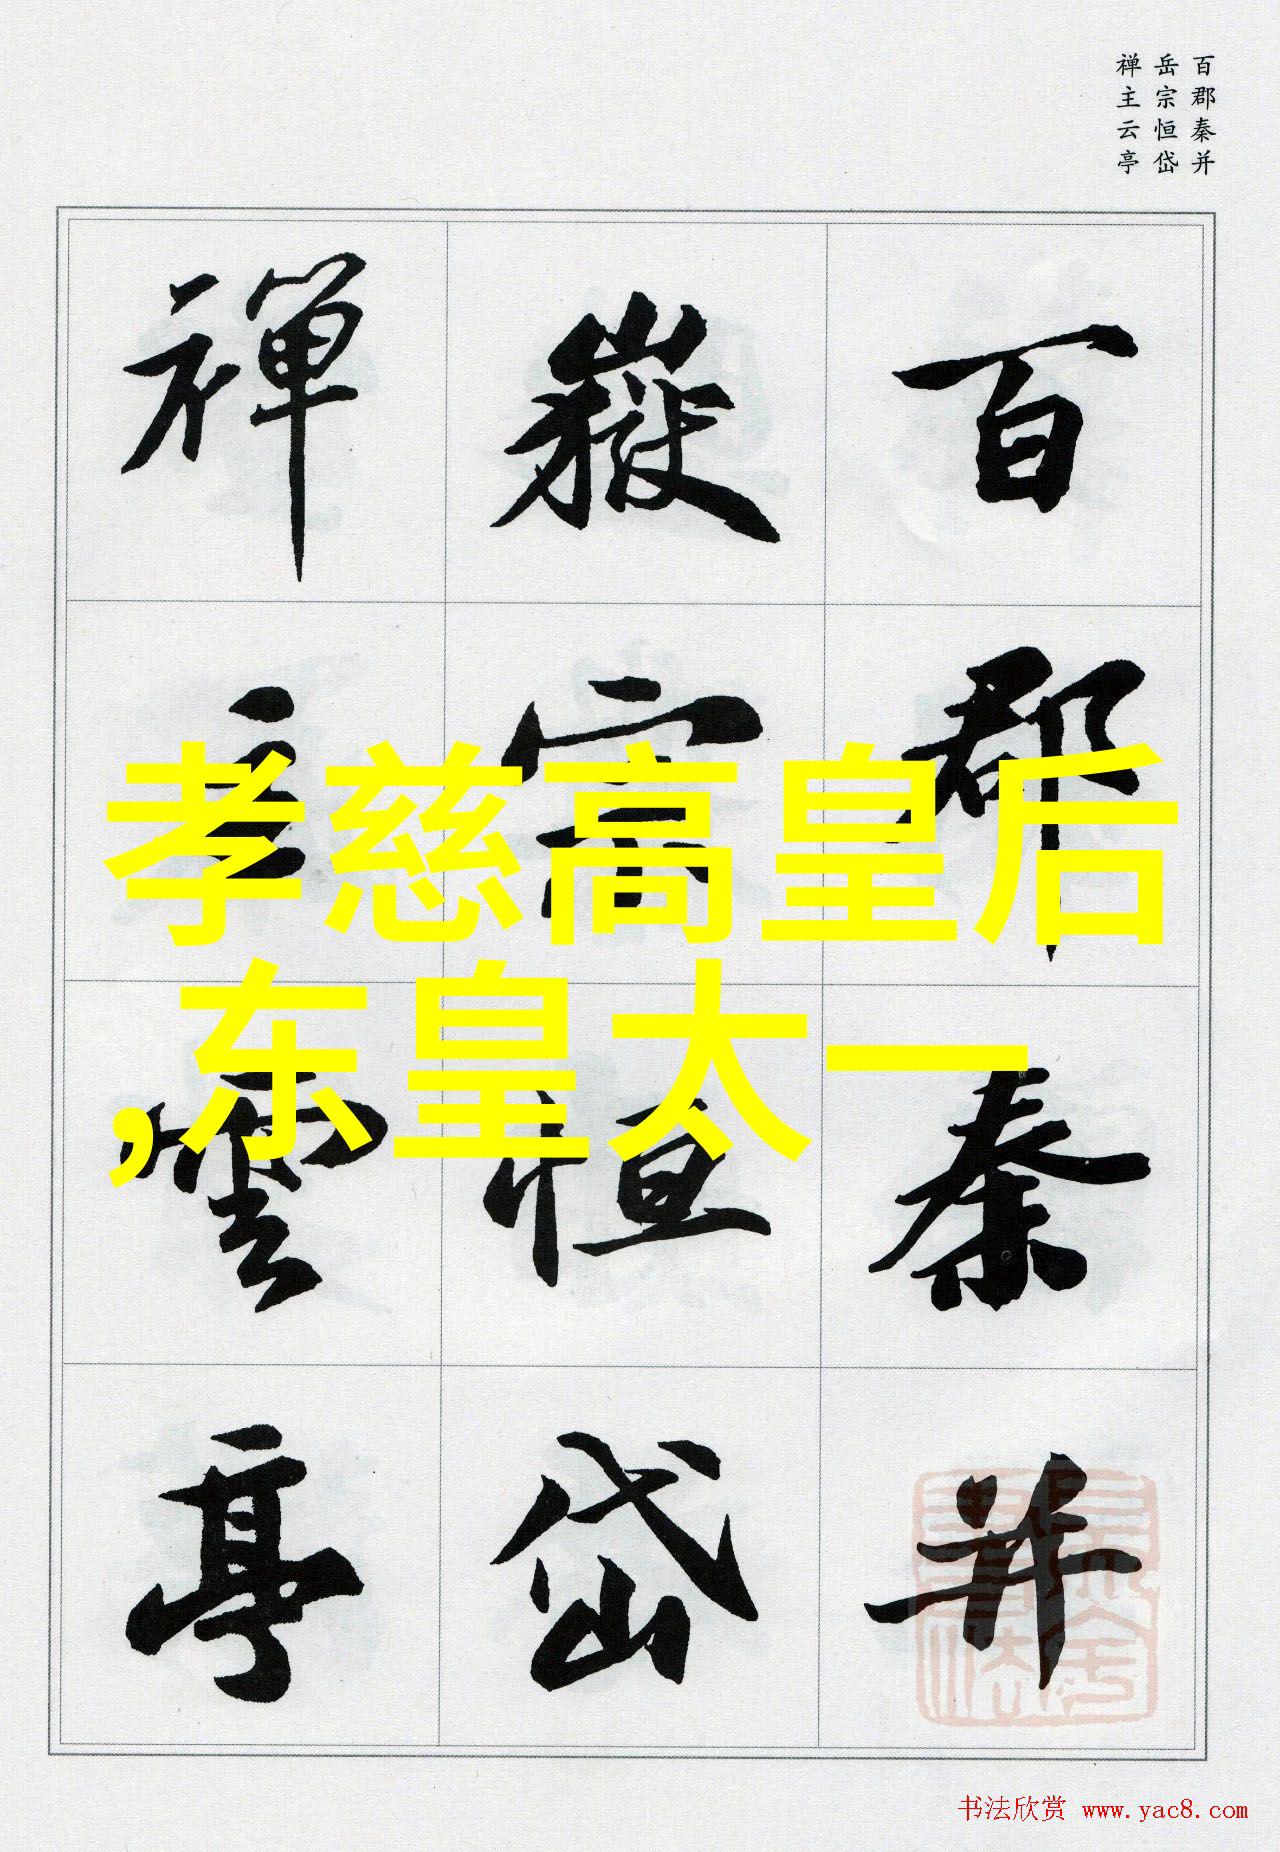 百郡秦并
岳宗恒岱
禅主云亭
百郡秦并
嶽宗恒岱
禅主雲亭
孝慈高皇后
,东皇太一
书法欣赏 www.yac8.com